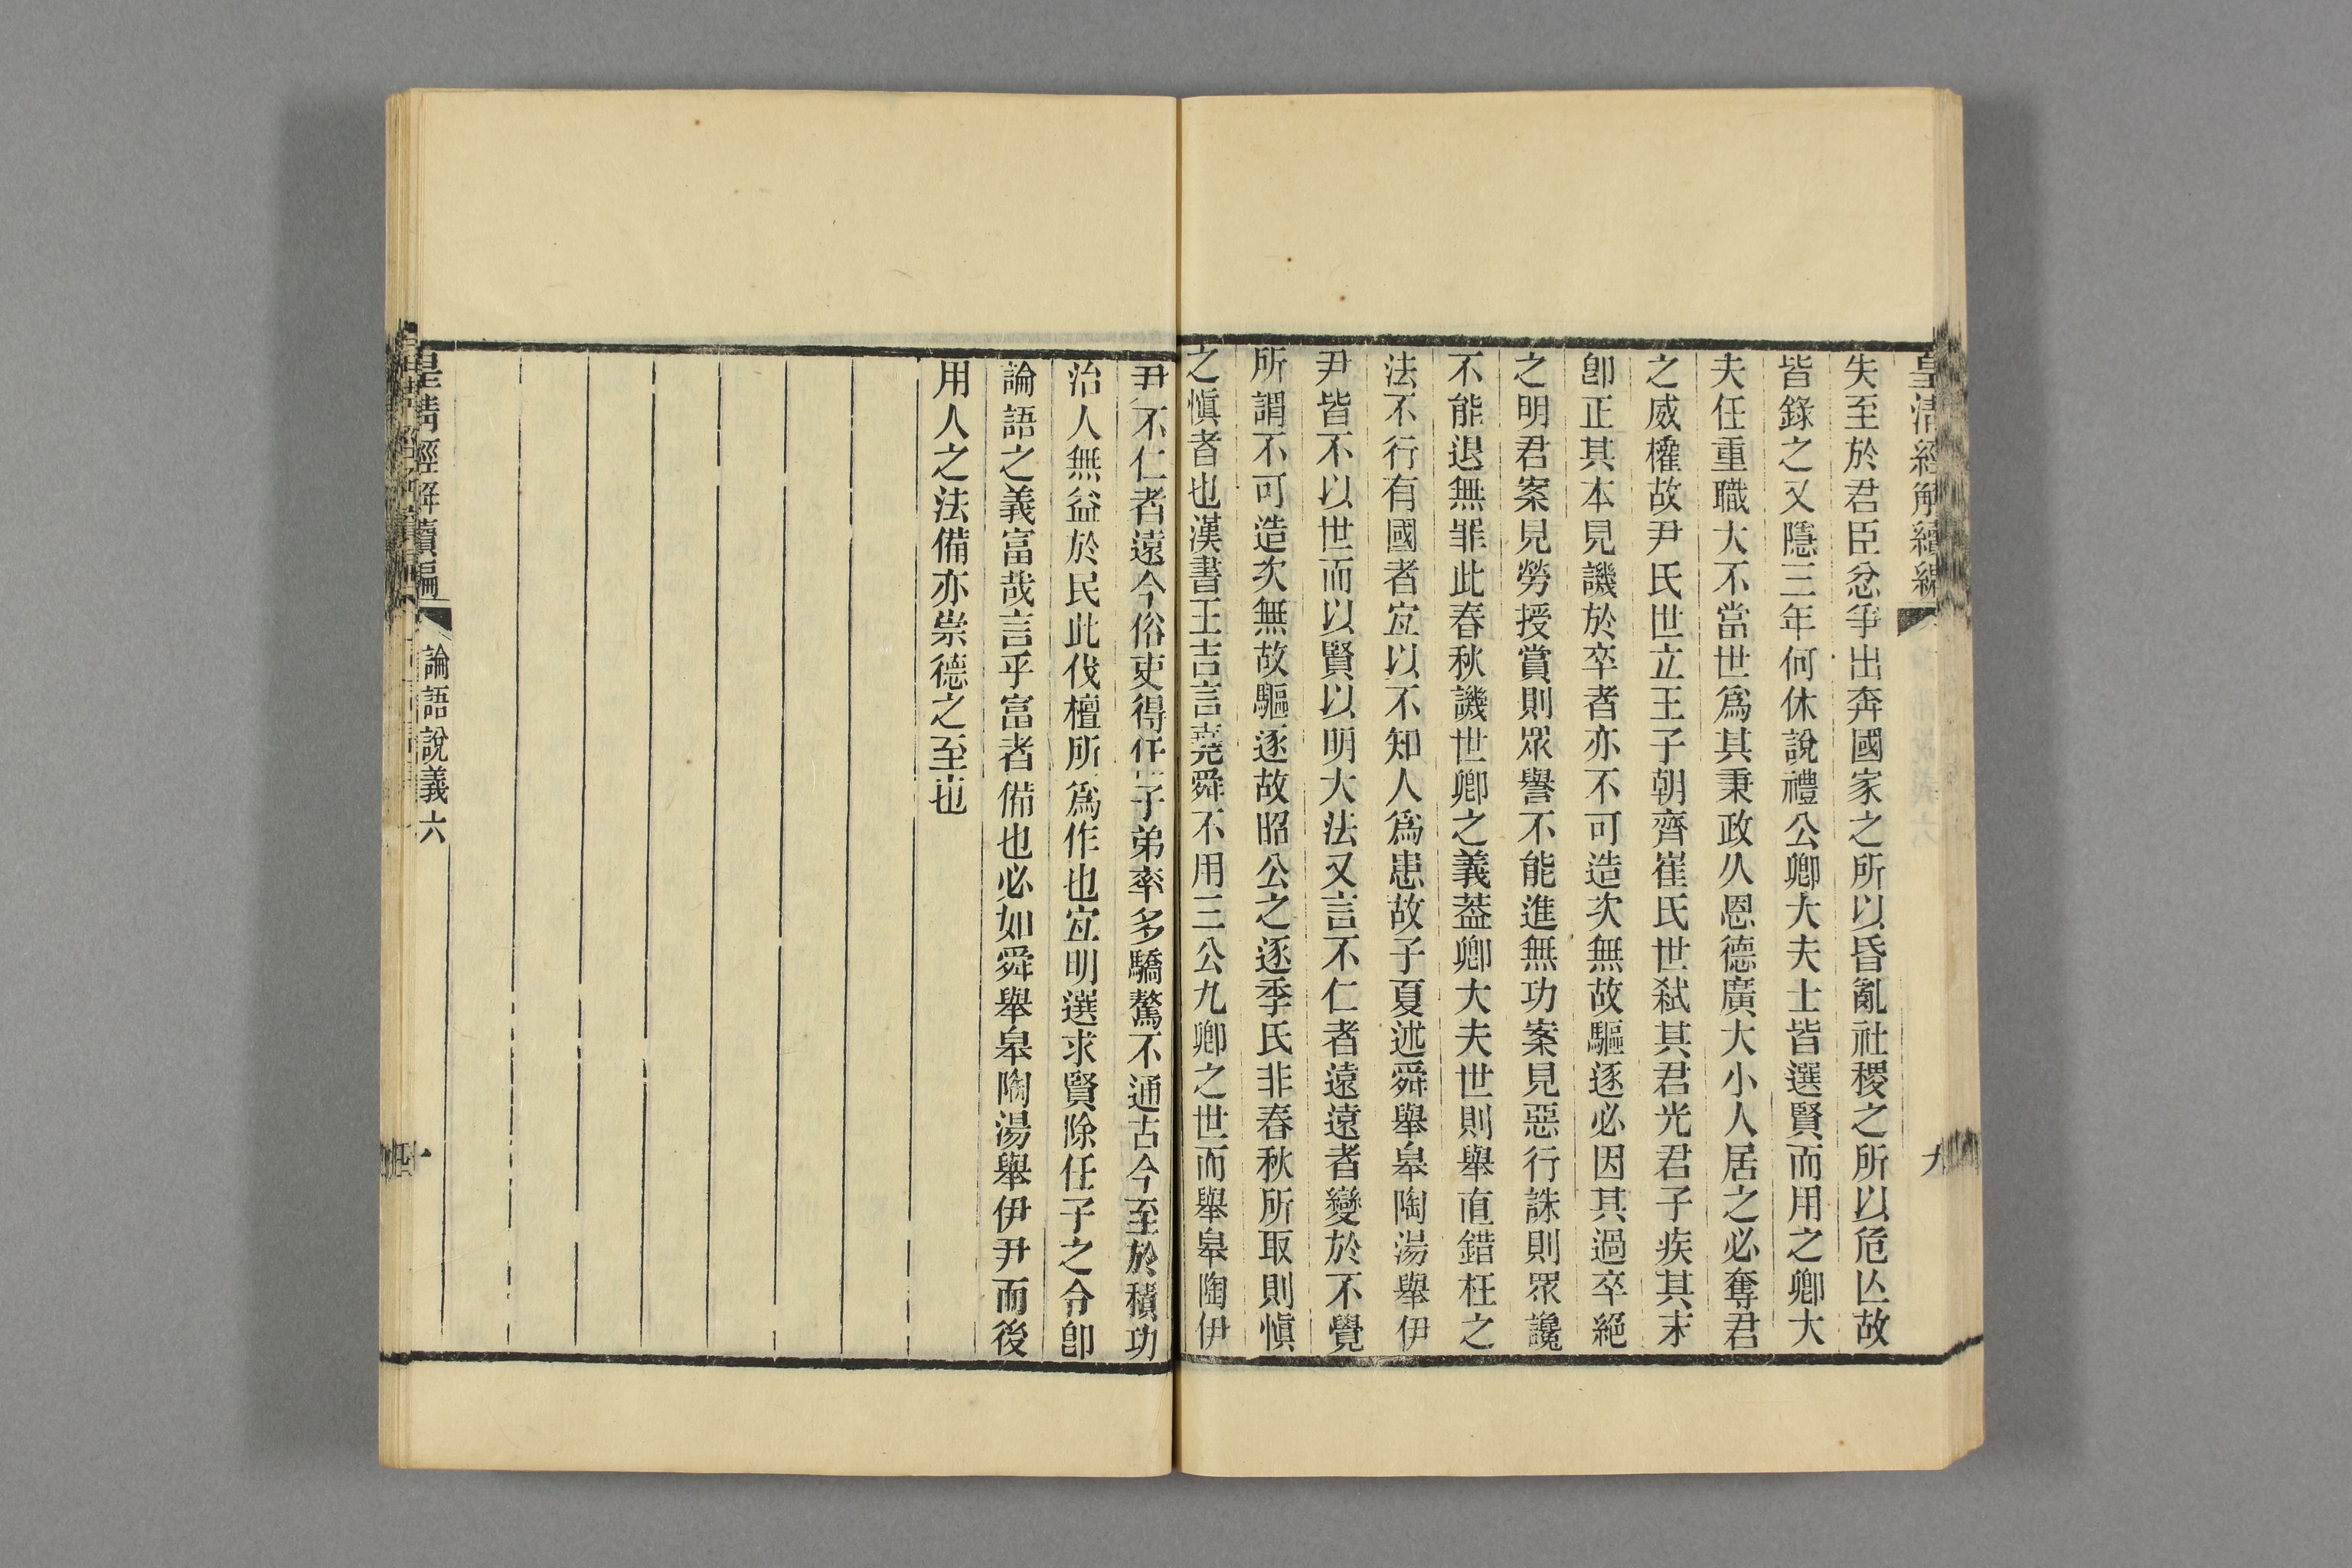 皇清經解續編
九
失至於君臣忿爭出奔國家之所以昏亂社稷之所以危亾故
皆錄之又隱三年何休說禮公卿大夫士皆選賢而用之卿大
夫任重職大不當世爲其秉政久恩德廣大小人居之必奪君
之威權故尹氏世立王子朝齊崔氏世弒其君光君子疾其末
卽正其本見譏於卒者亦不可造次無故驅逐必因其過卒絕
之明君案見勞授賞則眾譽不能進無功案見惡行誅則眾讒
不能退無罪此春秋譏世卿之義葢卿大夫世則舉直錯枉之
法不行有國者宐以不知人爲患故子夏述舜舉皋陶湯舉伊
尹皆不以世而以賢以明大法又言不仁者遠遠者變於不覺
所謂不可造次無故驅逐故昭公之逐季氏非春秋所取則愼
之愼者也漢書王吉言堯舜不用三公九卿之世而舉皋陶伊
尹不仁者遠今俗吏得任子弟率多驕驁不通古今至於積功
治人無益於民此伐檀所爲作也宐明選求賢除任子之令卽
論語之義富哉言乎富者備也必如舜舉皋陶湯舉伊尹而後
用人之法備亦崇德之至也
皇清經解續編
論語說義六
十